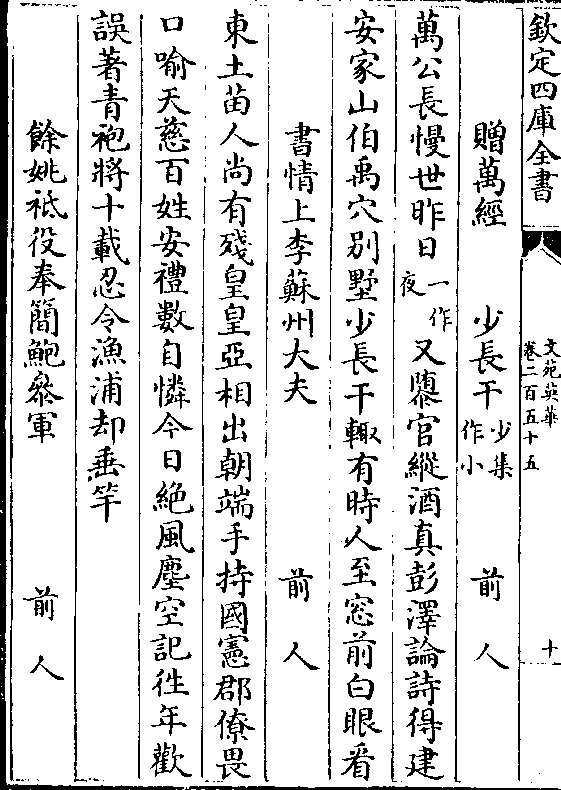 欽定四庫全書
文苑英華
卷二百五十五
十
贈萬經 少長干 少集作小 前人
萬公長慢世昨日 一作夜 又隳官縱酒真彭澤論詩得建
安家山伯禹穴别墅少長干輒有時人至窓前白眼看
書情上李蘇州大夫 前人
東土苗人尚有殘皇皇亞相出朝端手持國憲郡僚畏
口喻天慈百姓安禮數自憐今日絶風塵空記徃年歡
誤著青袍將十載忍令漁浦却垂竿
餘姚祗役奉簡鮑叅軍 前人